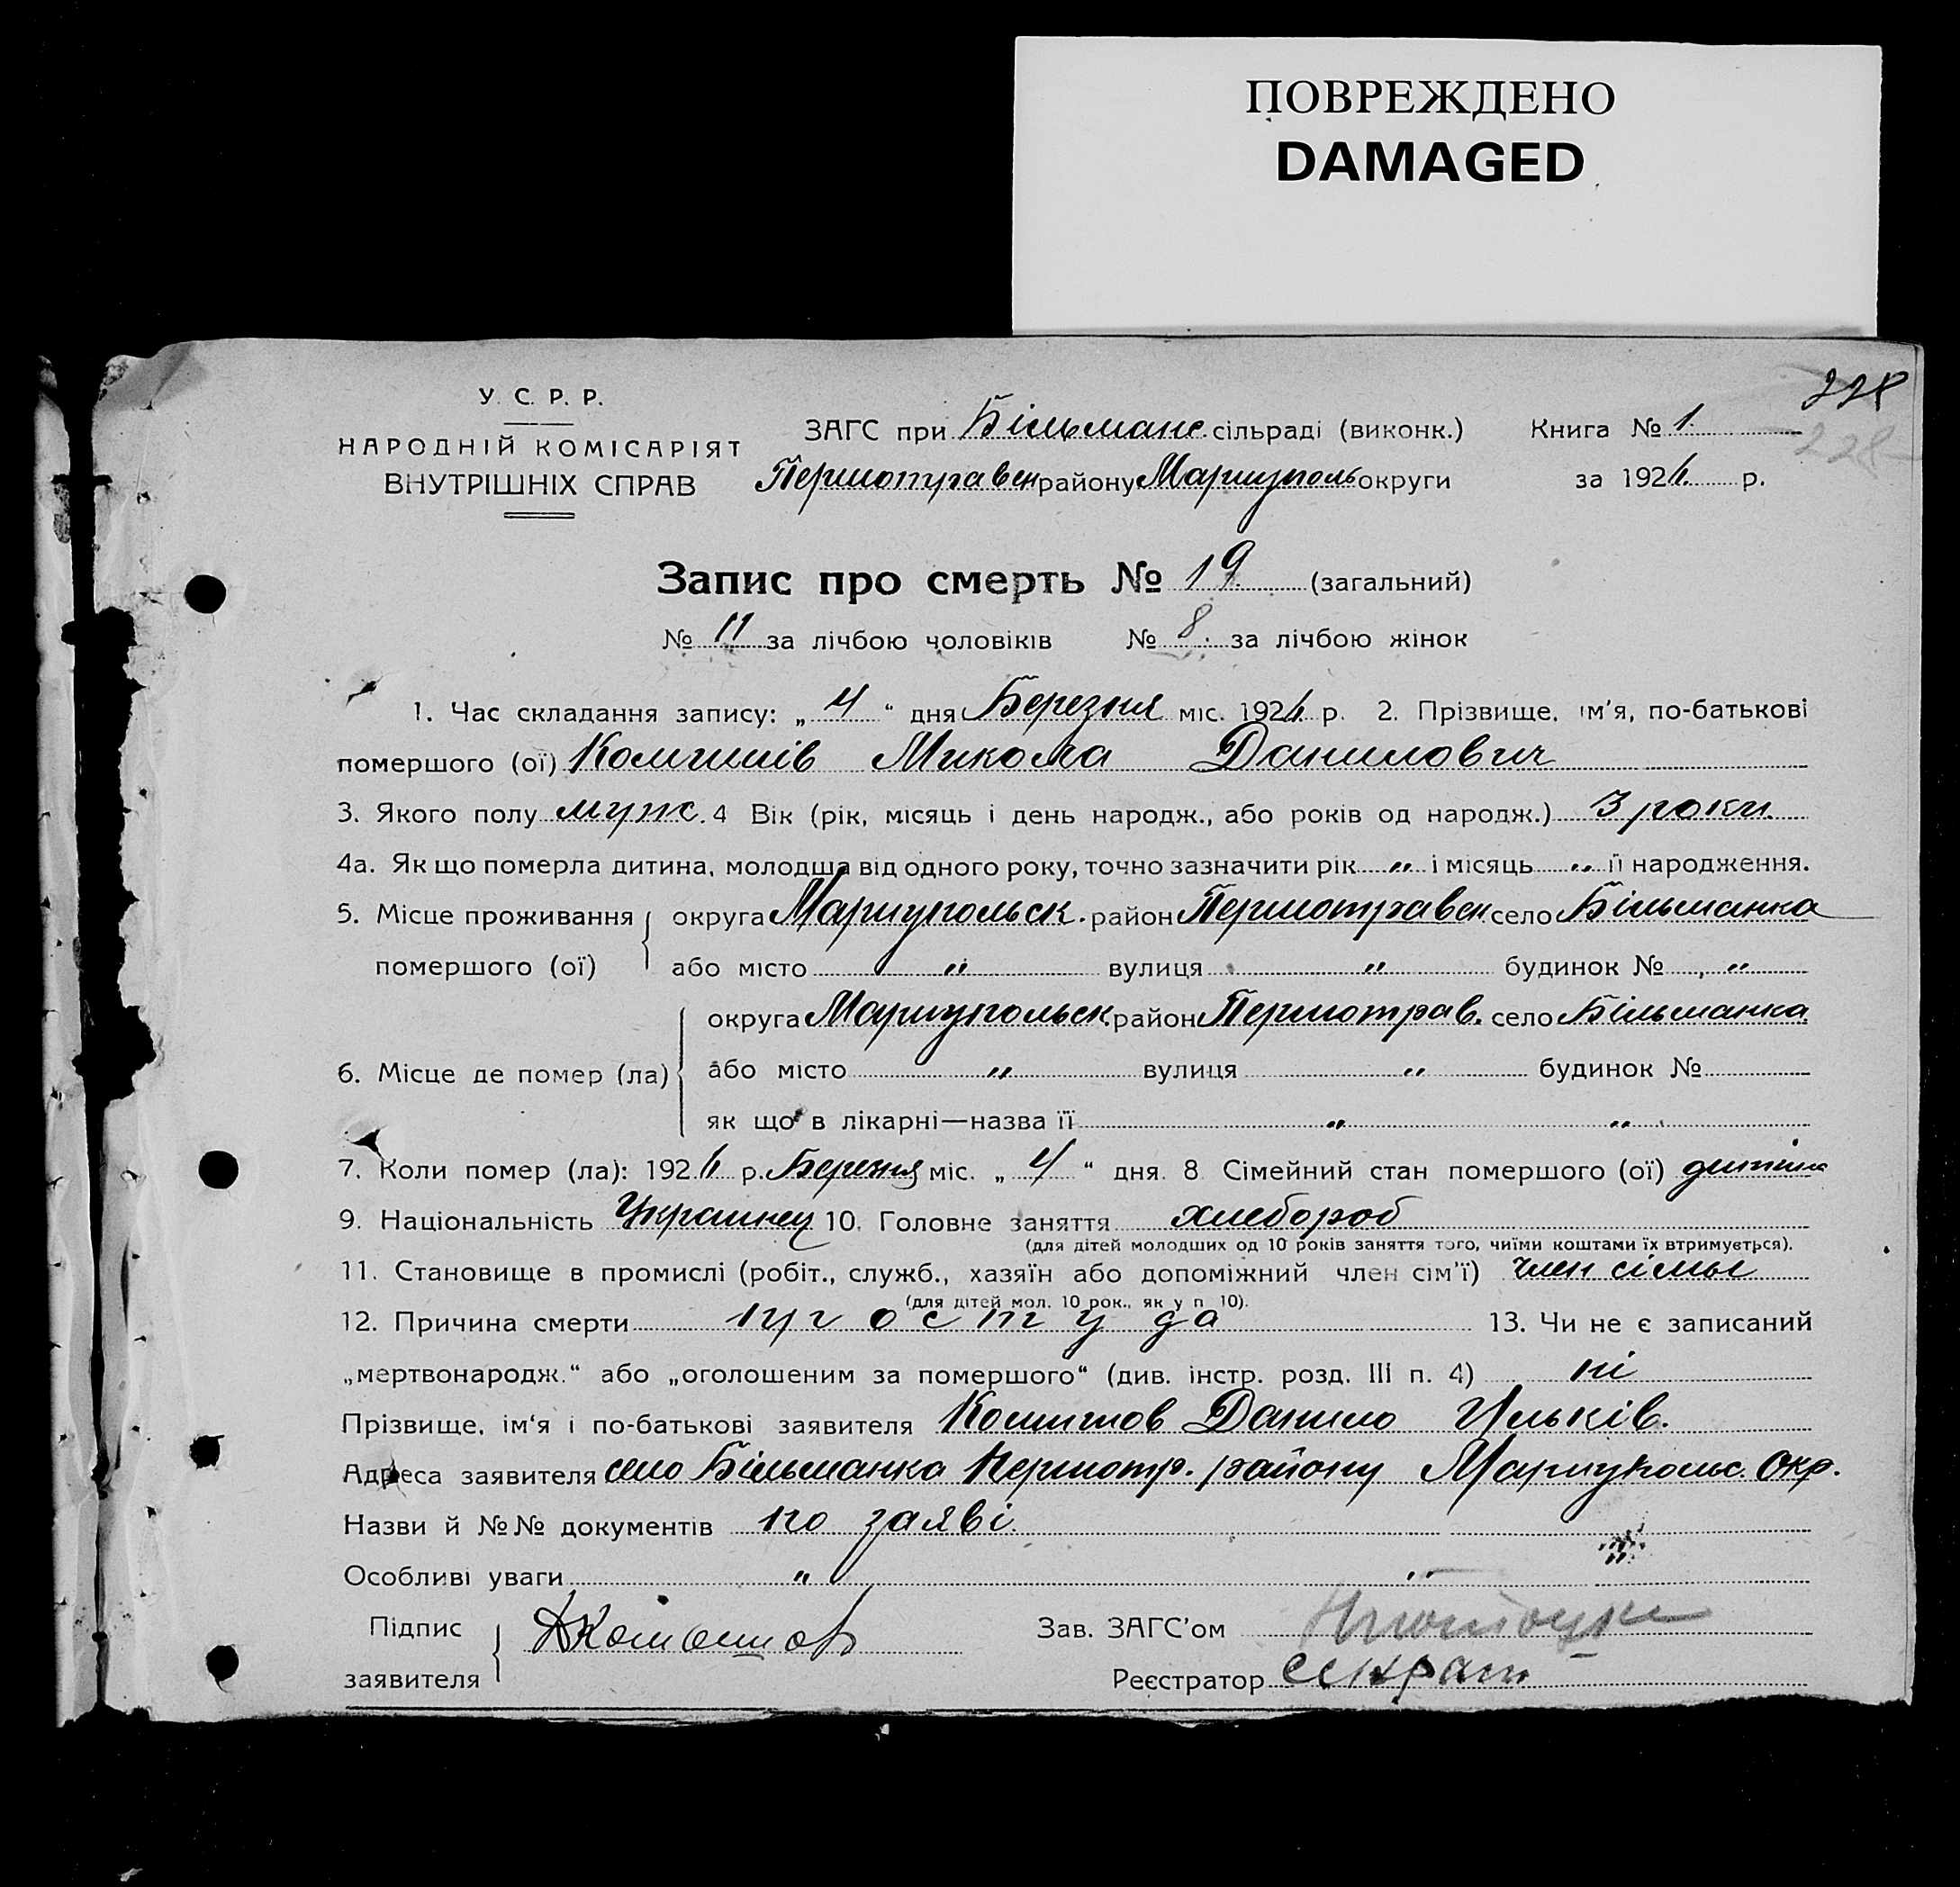 ПОВРЕЖДЕНО
DAMAGED
228
228
У. С. Р. Р.
НАРОДНІЙ КОМІСАРІЯТ
ВНУТРІШНІХ СПРАВ
ЗАГС при Більманс. сільраді (виконк.) Книга № 1
Першотравен району Маріуполь округи за 1926. р.
Запис про смерть № 19 (загальний)
№ 11 за лічбою чоловіків № 8. за лічбою жінок
1. Час складання запису: „ 4 “ дня Березня міс. 1926 р. 2. Прізвище, ім'я, по-батькові
помершого (ої) Микола Данилович
3. Якого полу муж. 4 Вік (рік, місяць і день народж., або років од народж.) 3 роки.
4а. Як що померла дитина, молодша від одного року, точно зазначити рік „ і місяць „ її народження.
5. Місце проживання округа Мариупольск. район Першотравен село Більманка
помершого (ої) або місто „ вулиця „ будинок № „
округа Мариупольск. район Першотрав. село Більманка
6. Місце де помер (ла) або місто „ вулиця „ будинок №
як що в лікарні—назва її „ „
7. Коли помер (ла): 1926 р. Березня міс. „ 4 “ дня. 8 Сімейний стан помершого (ої) дитина
9. Національність Украинец 10. Головне заняття хлебороб
(для дітей молодших од 10 років заняття того, чиїми коштами їх втримується).
11. Становище в промислі (робіт., служб., хазяїн або допоміжний член сім'ї) член сімьї
(для дітей мол. 10 рок., як у п 10).
12. Причина смерти простуда 13. Чи не є записаний
„мертвонародж.“ або „оголошеним за помершого“ (див. інстр. розд. III п. 4) ні
Прізвище, ім'я і по-батькові заявителя Данило Ильків.
Адреса заявителя село Більманка Першотр. району Мариупольс. Окр.
Назви й №№ документів по заяві
Особливі уваги „ „
Підпис
заявителя
Зав. ЗАГС'ом
Реєстратор Секрат